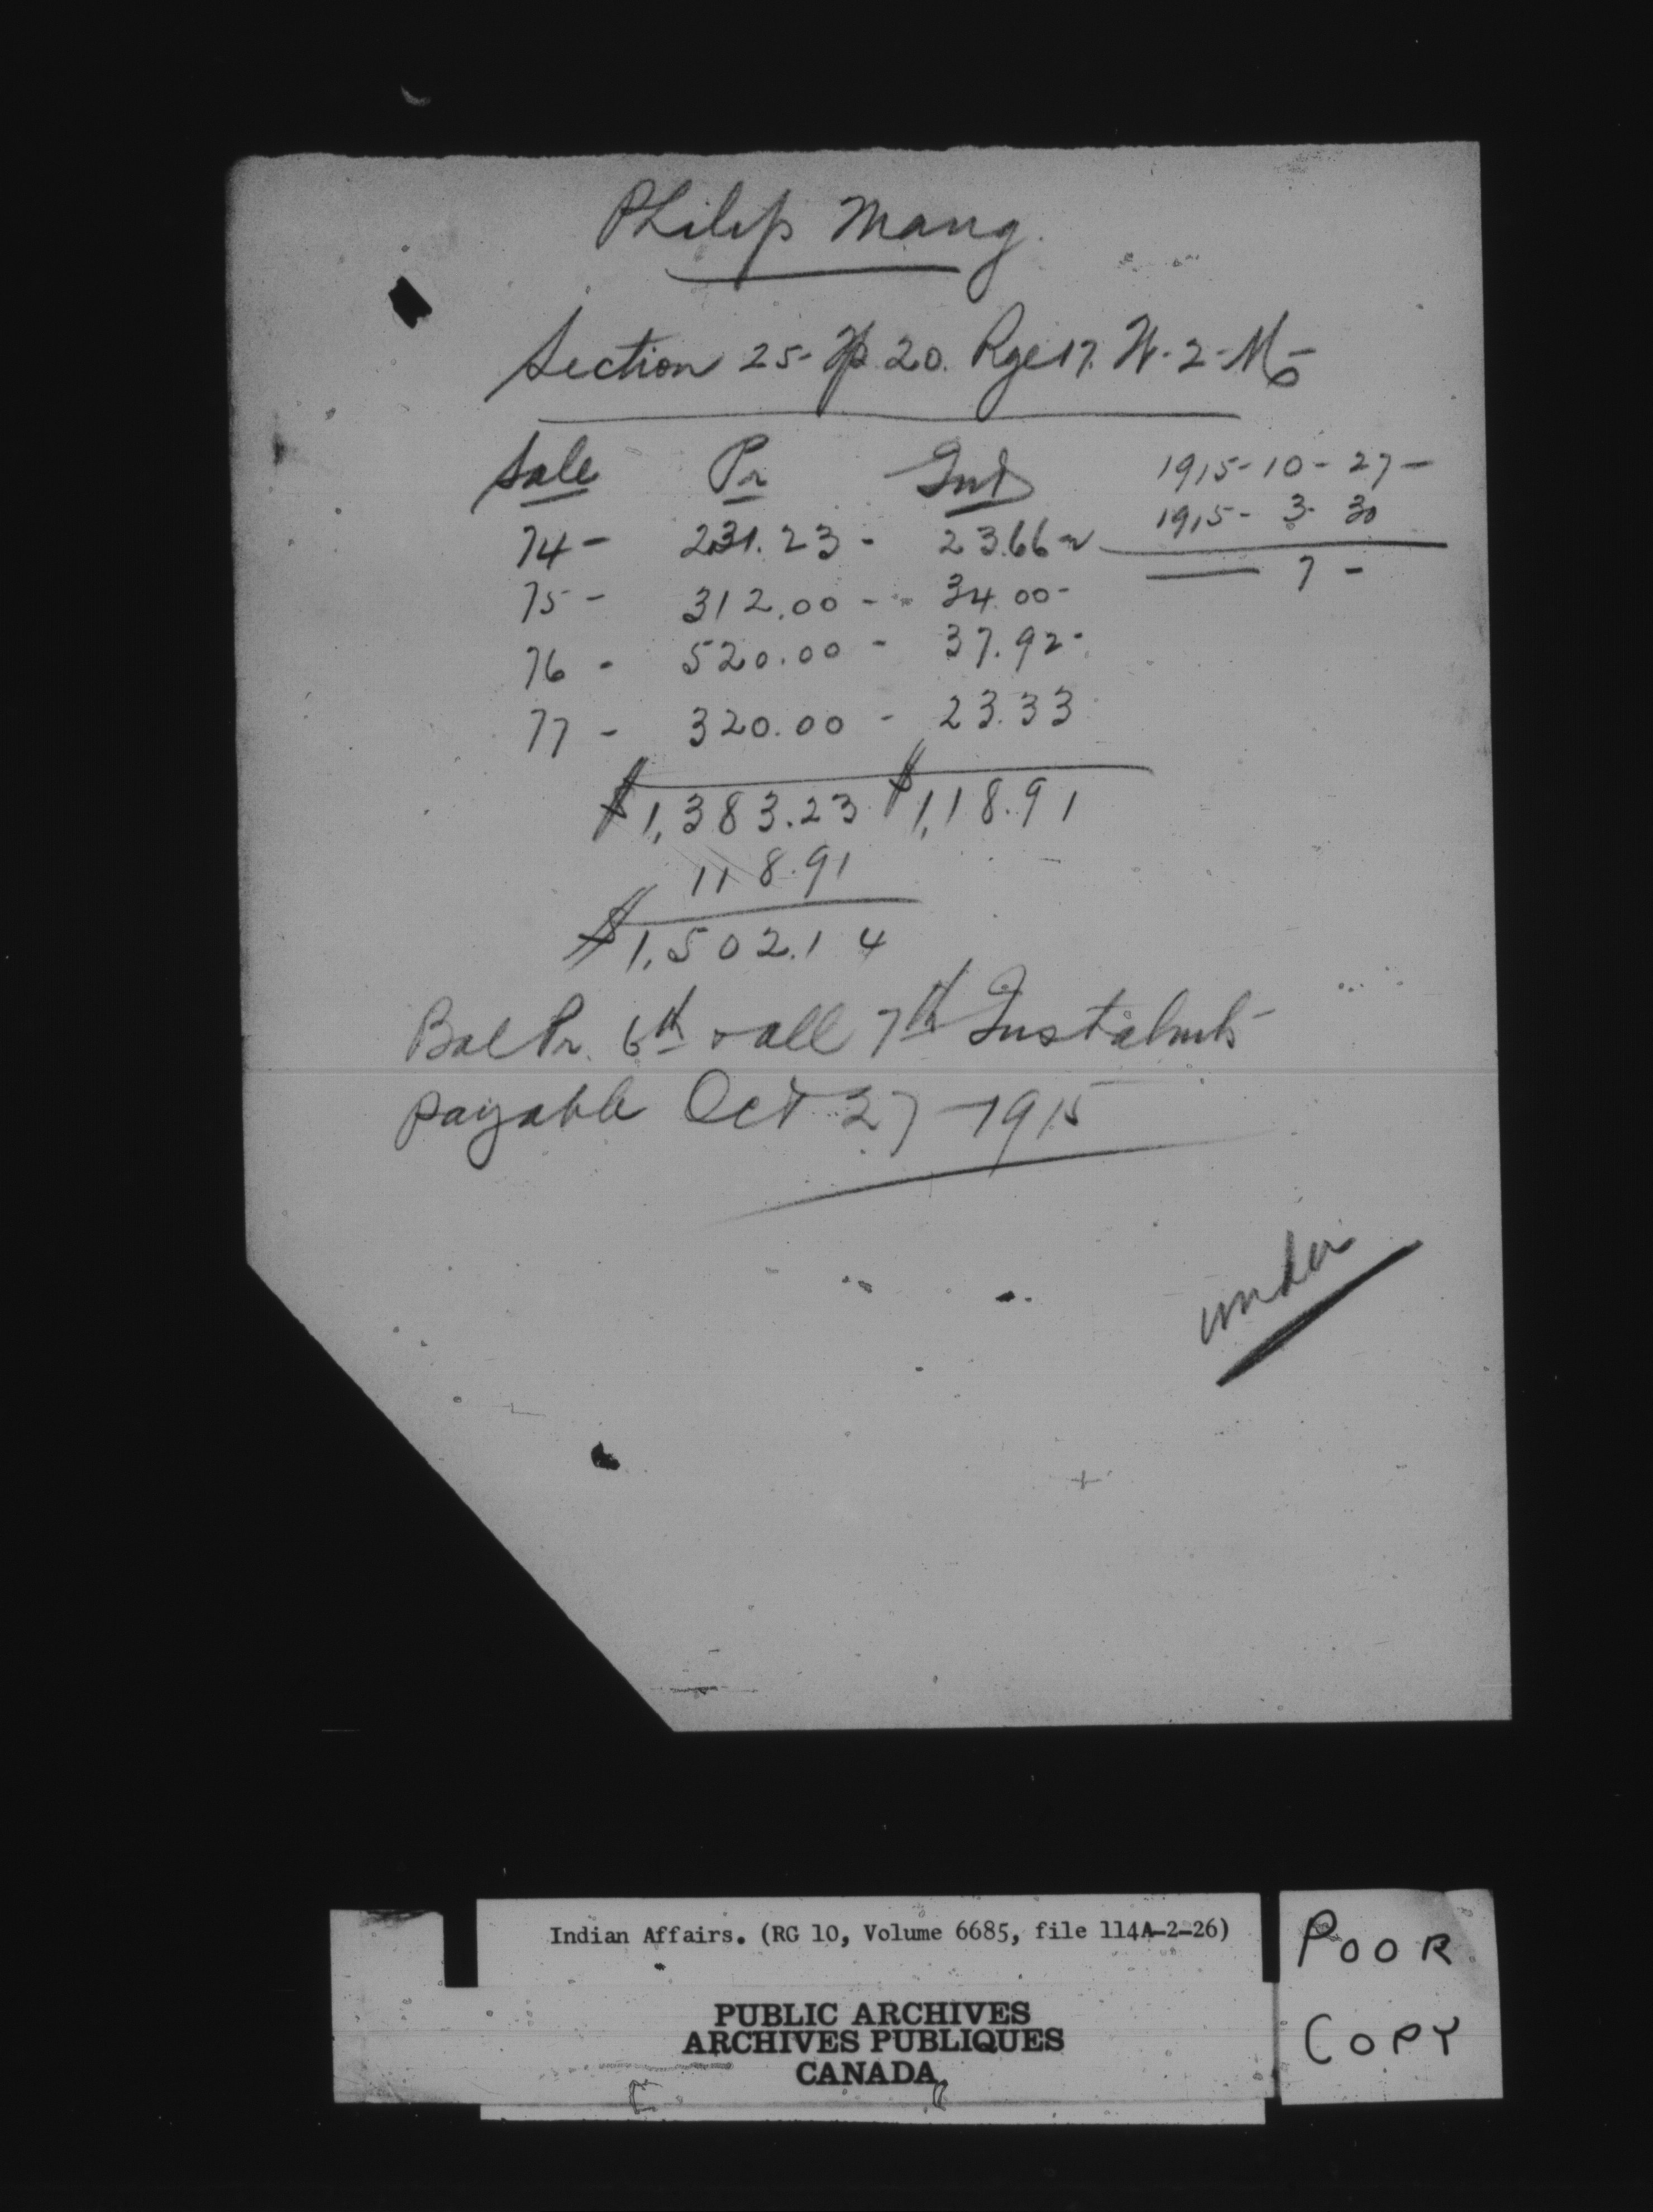 Philip Mang.
Section 25- Tp. 20. Rge 17. W-2-M-
Sale Pr Int 1915-10-27-
1915- 3- 30
74- 231.23- 23.66
7-
75- 312.00- 34.00-
76- 520.00- 37.92-
77- 320.00- 23.33
$1,383.23 $1,18.91
118.91
$1,502.14
Bal Pr. 6th & all 7th Instalmts
payable Oct 27-1915
under
Indian Affairs. (RG 10, Volume 6685, file 114A-2-26)
POOR
COPY
PUBLIC ARCHIVES
ARCHIVES PUBLIQUES
CANADA